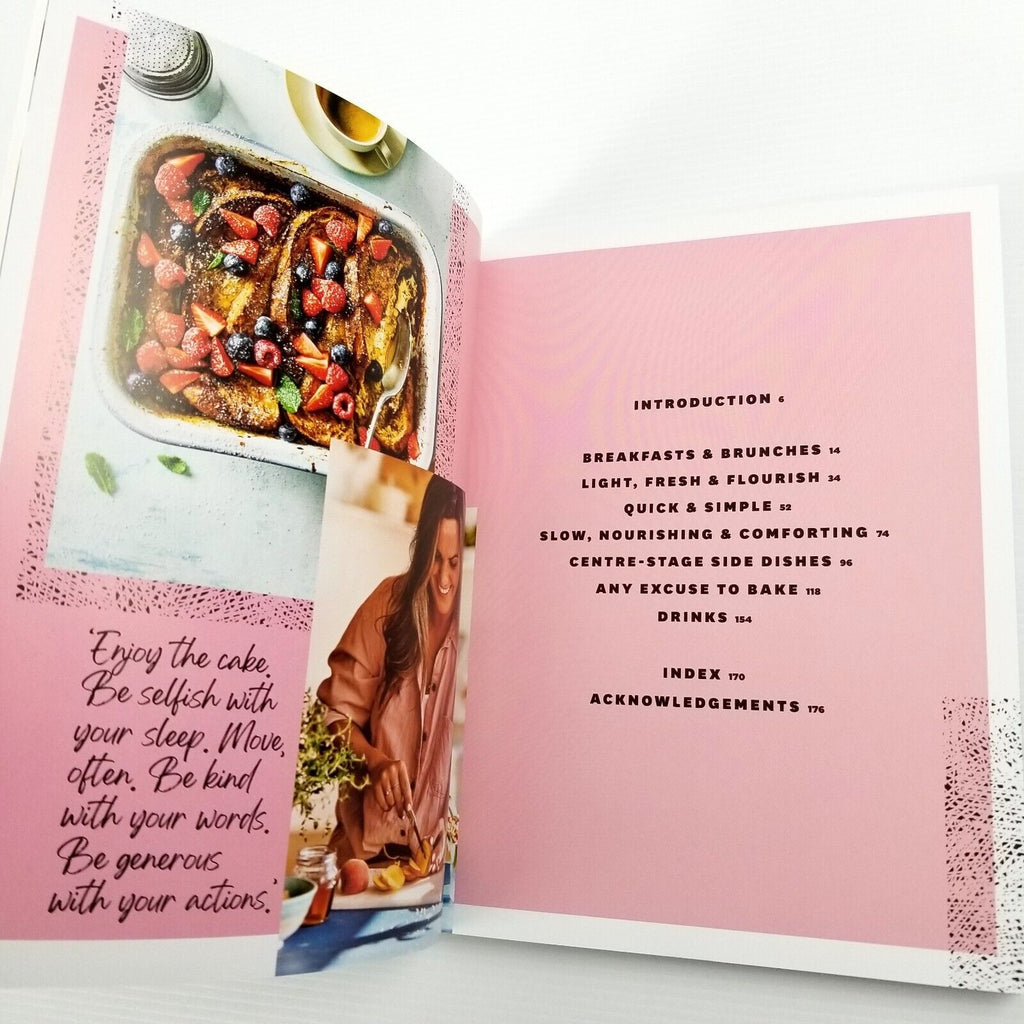 'Enjoy the cake.
Be selfish with
your sleep. Move,
often. Be kind
with your words.
Be generous
with your actions.'
INTRODUCTION 6
BREAKFASTS & BRUNCHES 14
LIGHT, FRESH & FLOURISH 34
QUICK & SIMPLE 52
SLOW, NOURISHING & COMFORTING 74
CENTRE-STAGE SIDE DISHES 96
ANY EXCUSE TO BAKE 118
DRINKS 154
INDEX 170
ACKNOWLEDGEMENTS 176